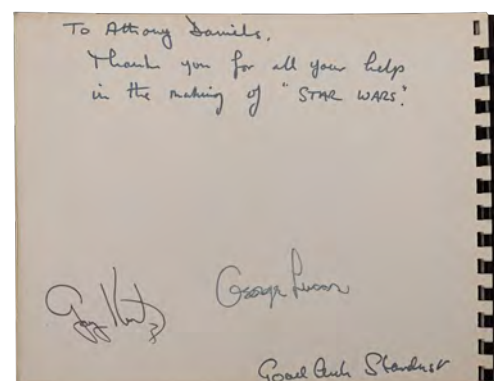 To Anthony Daniels,
Thank you for all your help
in the making of "STAR WARS".
George Lucas
Gary Kurtz
Good Luck Stardust